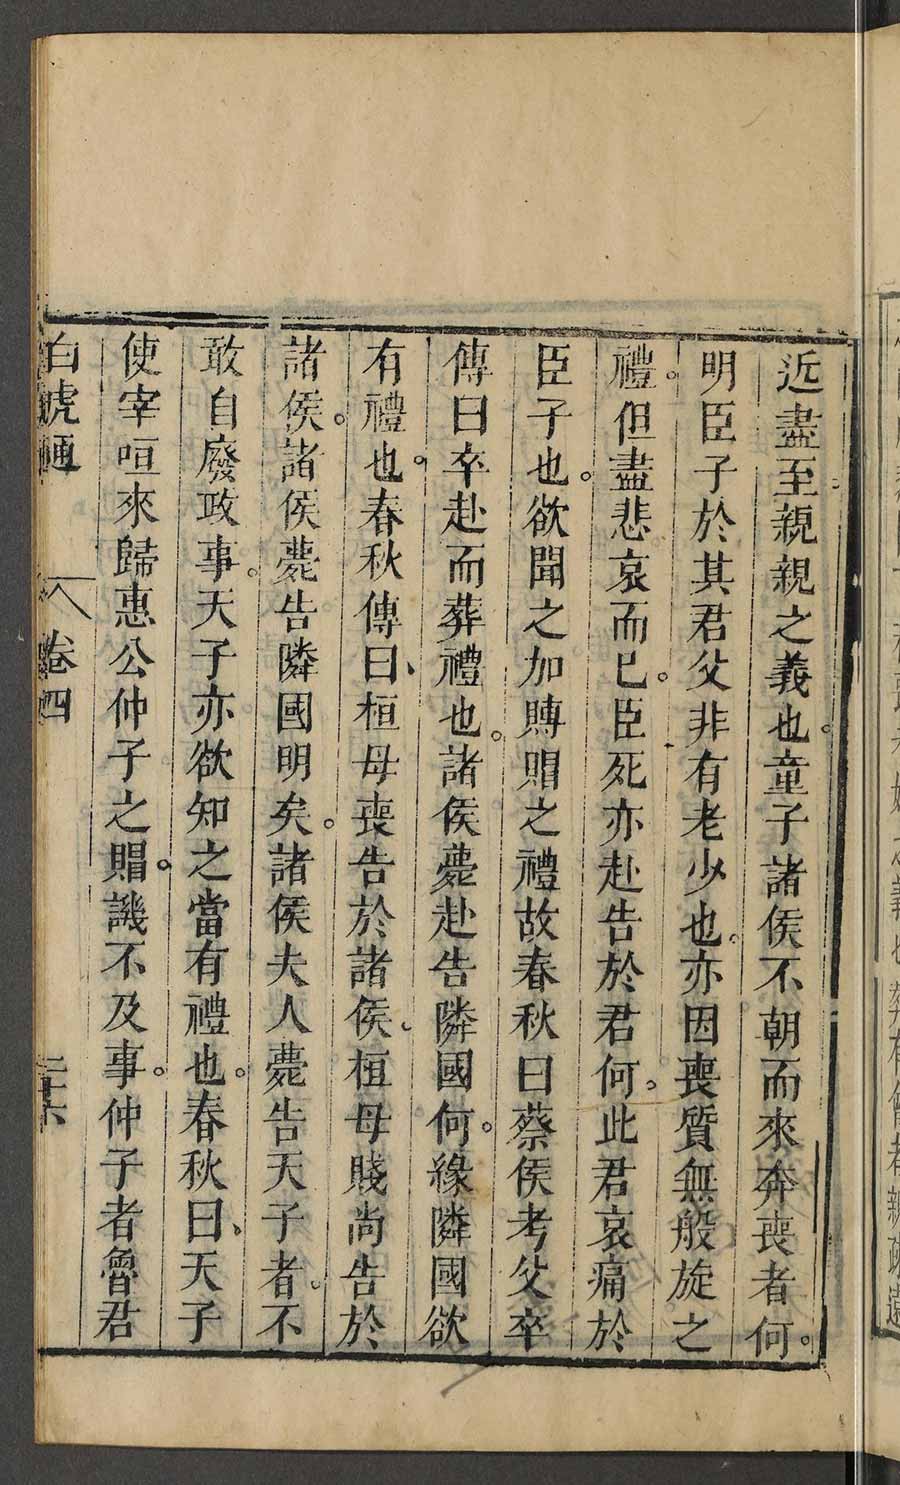 近盡至親親之義也。童子諸侯不朝而來奔喪者何。
明臣子於其君父非有老少也。亦因喪質無般旋之
禮。但盡悲哀而已。臣死亦赴告於君何。此君哀痛於
臣子也。欲聞之加賻賵之禮故春秋曰蔡侯考父卒
傳曰卒赴而葬禮也。諸侯薨赴告隣國何。緣隣國欲
有禮也。春秋傳曰、桓母喪告於諸侯。桓母賤尚告於
諸侯。諸侯薨告隣國明矣。諸侯夫人薨告天子者。不
敢自廢政事。天子亦欲知之當有禮也。春秋曰、天子
使宰咺來歸惠公仲子之賵。譏不及事。仲子者魯君
白虎通 卷四 二十六